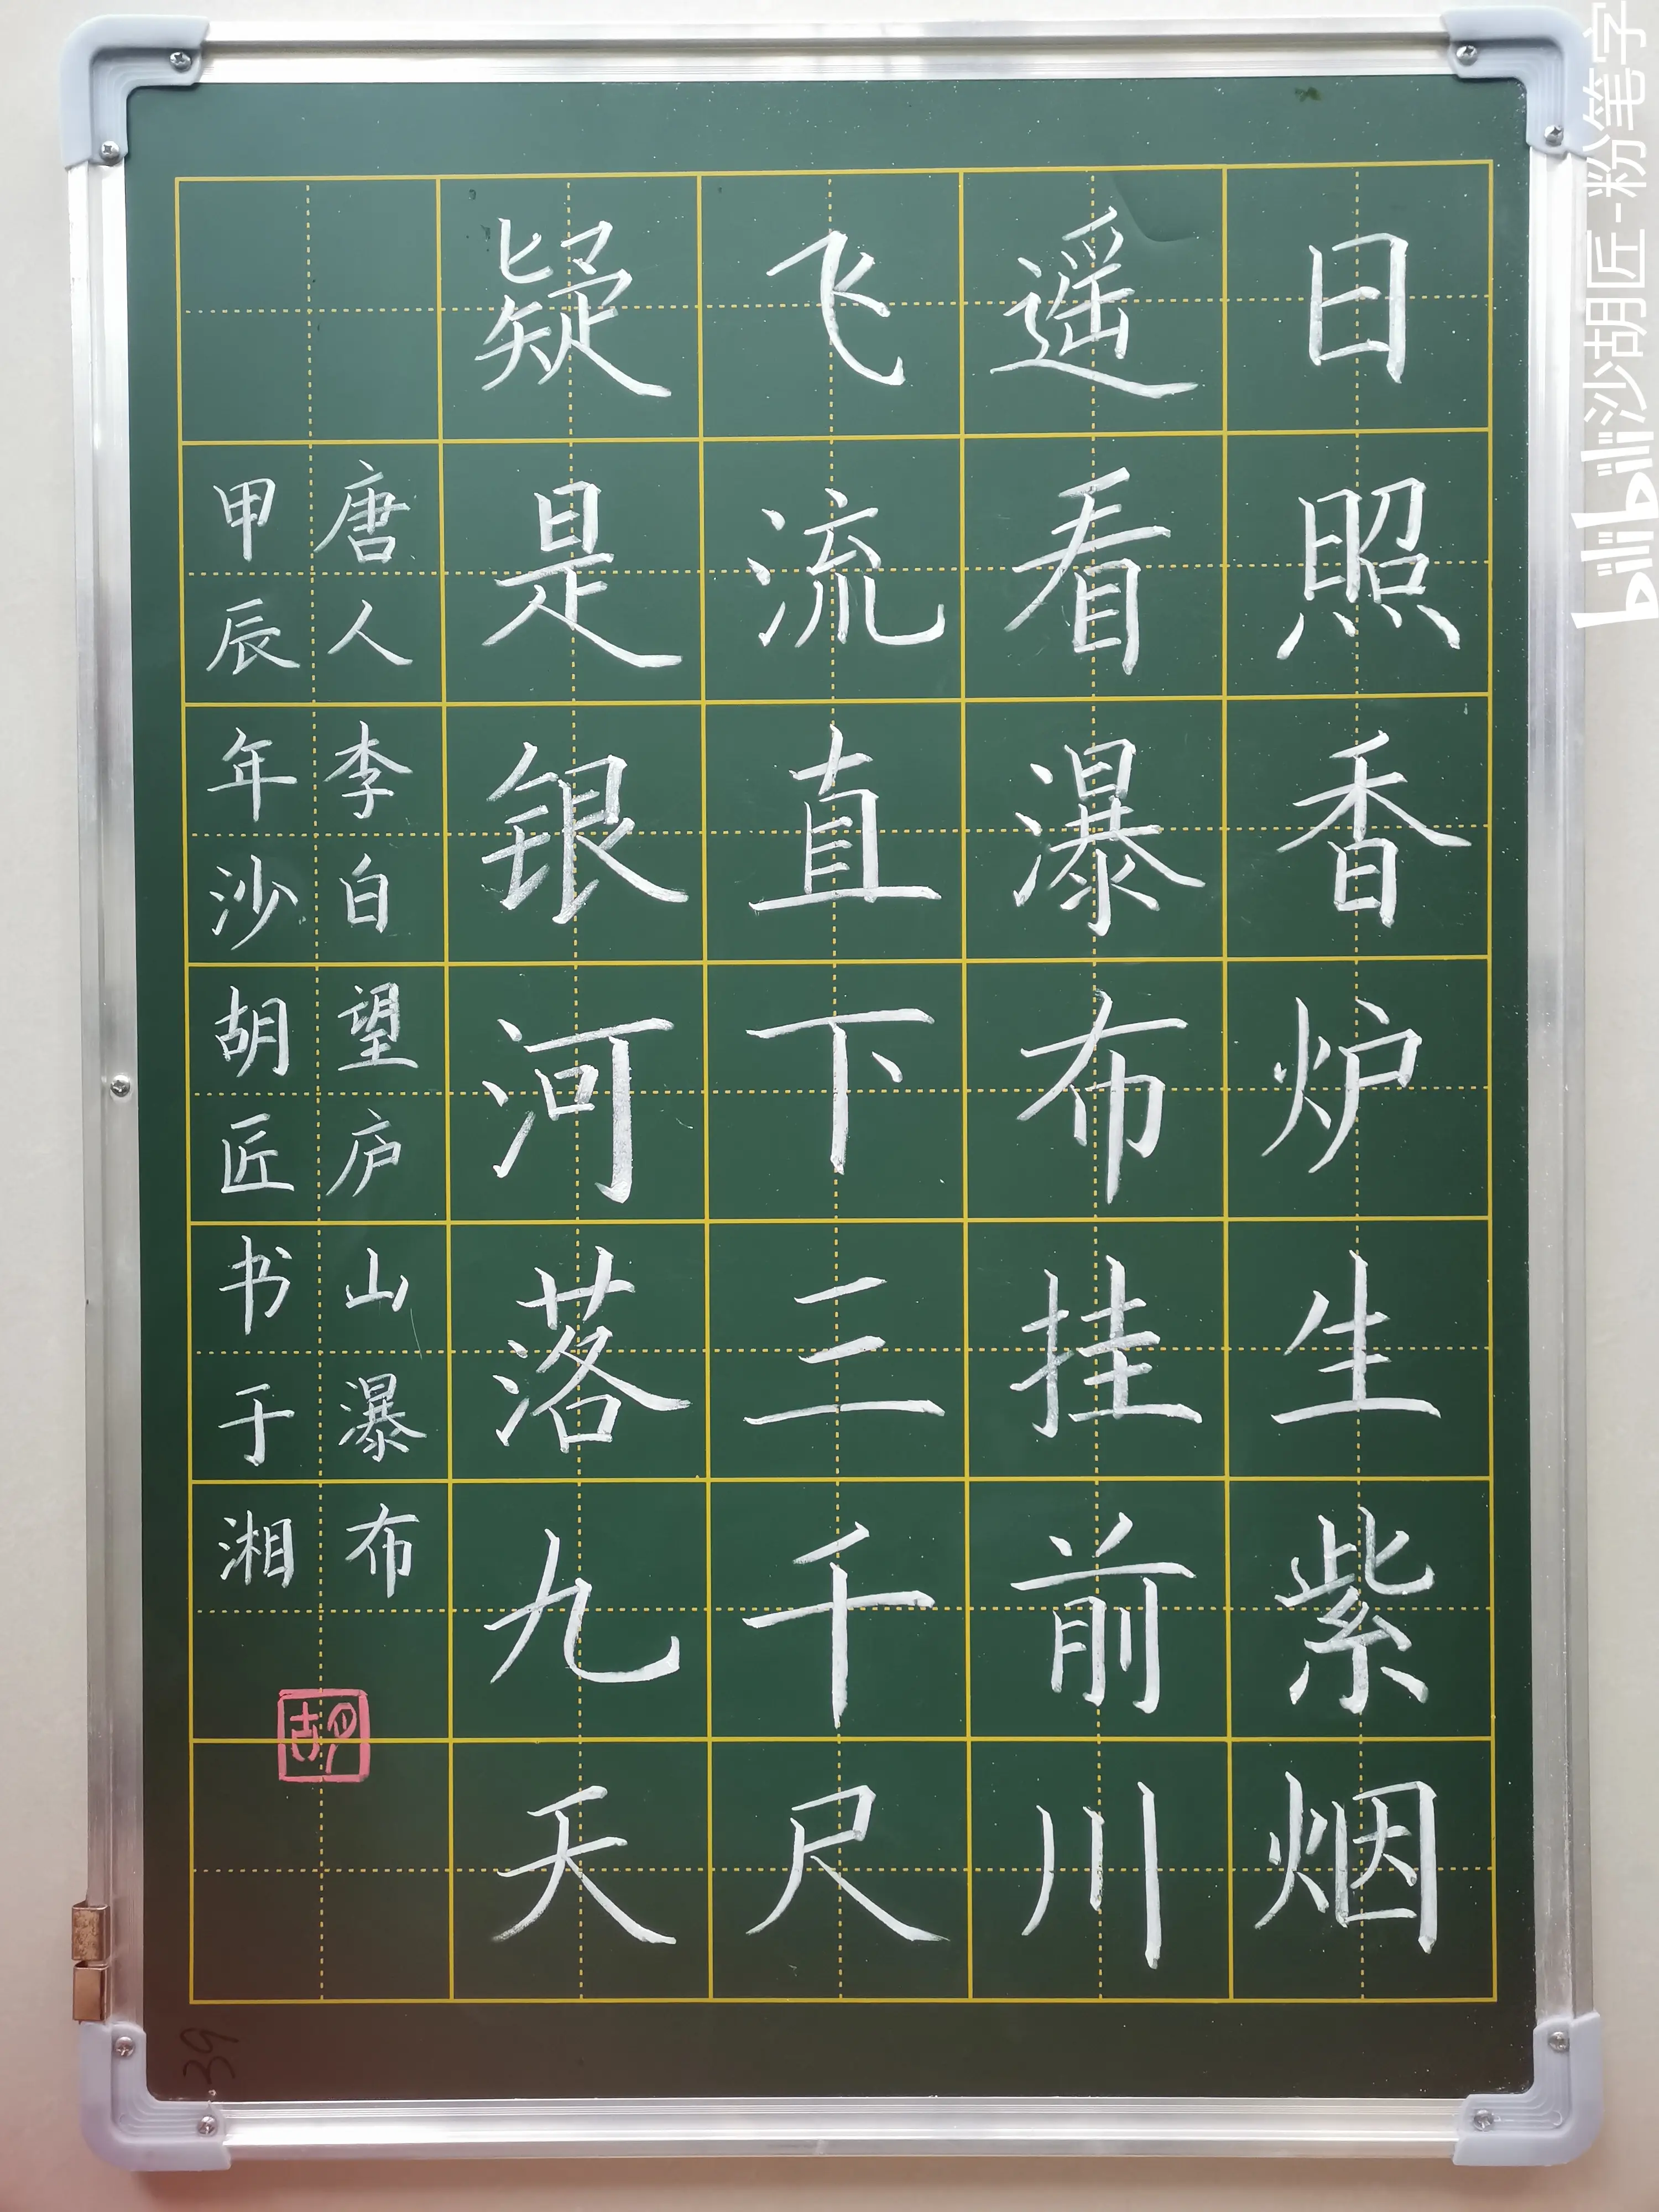 日照香炉生紫烟
遥看瀑布挂前川
飞流直下三千尺
疑是银河落九天
唐人李白望庐山瀑布
甲辰年沙胡匠书于湘
胡
39
沙湖胡匠-粉笔字
bilibili